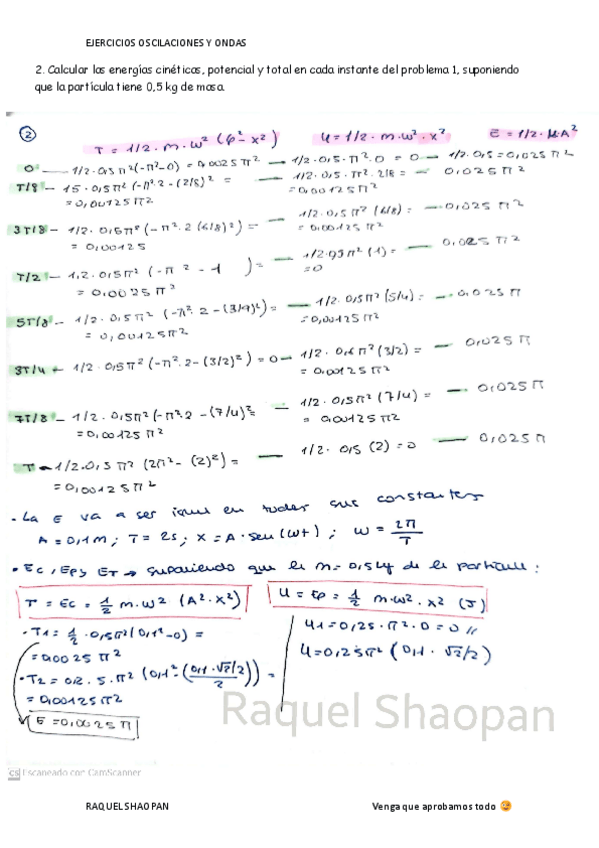 EJERCICIOS OSCILACIONES Y ONDAS
2. Calcular las energías cinéticas, potencial y total en cada instante del problema 1, suponiendo
que la partícula tiene 0,5 kg de masa.
②
T = 1/2 · m · ω² (φ² - x²) U = 1/2 · m · ω² · x² E = 1/2 · μA²
0 — 1/2 · 0,5 π² (-π² - 0) = 0,0025 π² → 1/2 · 0,5 · π² · 0 = 0 → 1/2 · 0,5 = 0,025 π²
T/8 — 15 · 0,5 π² (-π² · 2 - (2/8)² = — 1/2 · 0,5 · π² · 2/8 = — 0,025 π²
= 0,00125 π² = 0,00125 π²
3T/8 — 1/2 · 0,5 π² (-π² · 2 (6/8)²) = — 1/2 · 0,5 π² (6/8) = — 0,025 π²
= 0,00125 = 0,00125 π²
T/2 — 1,2 · 0,5 π² (-π² - 1 ) = — 1/2 · π² (1) = — 0,025 π²
= 0,0025 π² = 0
5T/8 — 1/2 · 0,5 π² (-π² · 2 - (3/4)²) = — 1/2 · 0,5 π² (5/4) = — 0,025 π
= 0,00125 π² = 0,00125 π²
3T/4 — 1/2 · 0,5 π² (-π² · 2 - (3/2)²) = 0 — 1/2 · π² (3/2) = — 0,025 π
= 0,00125 π²
7T/8 — 1/2 · 0,5 π² (-π² · 2 - (7/4)² = — 1/2 · 0,5 π² (7/4) = — 0,025 π
= 0,00125 π² = 0,00125 π2
T — 1/2 · 0,5 π² (2π² - (2)²) = — 1/2 · 0,5 (2) = 0 — 0,025 π
= 0,00125 π²
· La E va a ser igual en todas sus constantes
A = 0,1m ; T = 2s ; x = A · sen (ωt) ; ω = 2π/T
· Ec, Ep y ET → suponiendo que la m = 0,5 kg de la partícula :
T = Ec = 1/2 m · ω² (A² · x²) U = Ep = 1/2 m · ω² · x² (J)
· T1 = 1/2 · 0,5π² (0,1² - 0) = U1 = 0,25 · π² · 0 = 0 //
= 0,0025 π² U = 0,25π² (0,1 · √2/2)
· T2 = 0,2 · 5 · π² (0,1² - (0,1 · √2/2)/2)) =
= 0,00125 π²
E = 0,0025 π
Raquel Shaopan
CS Escaneado con CamScanner
RAQUEL SHAO PAN Venga que aprobamos todo 😜